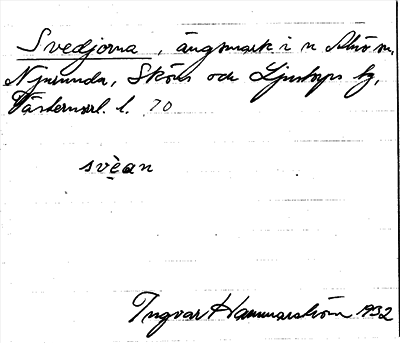 Svedjorna, ängsmark i n Alnö sn,
Njurunda, Sköns och Ljustorps tg,
Västernorrl. l. 70
svèan
Ingvar Hammarström 1932